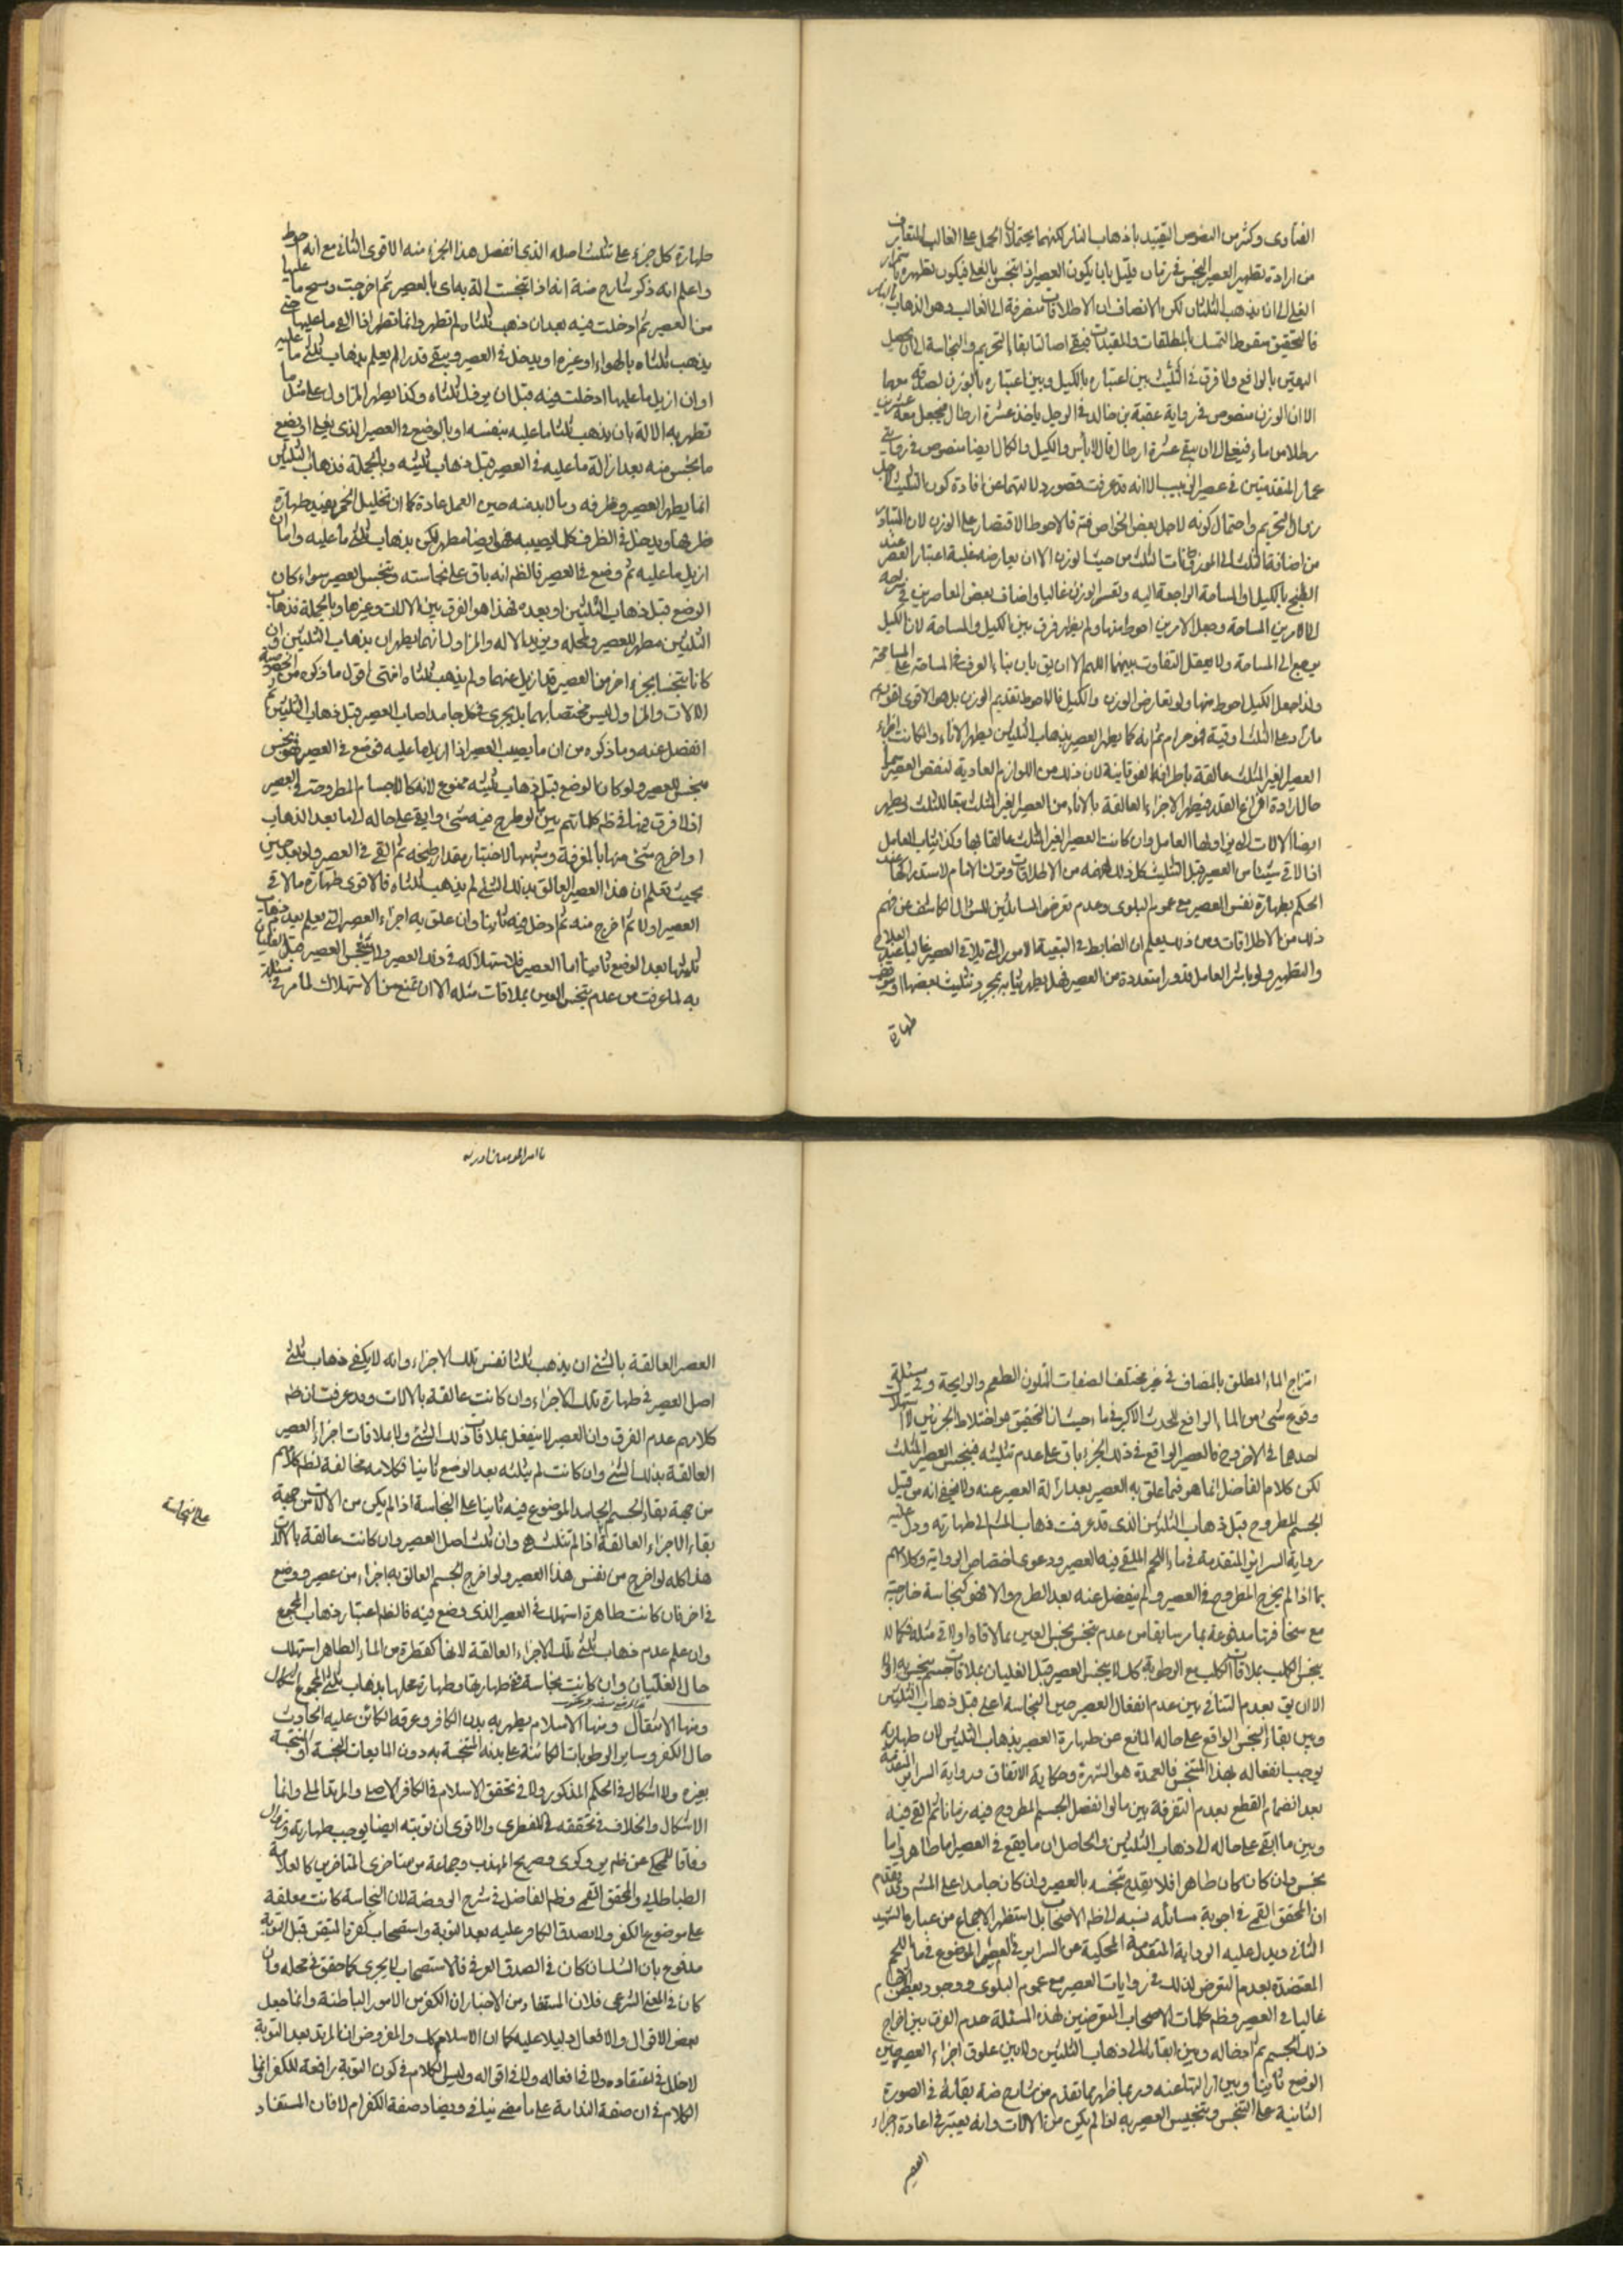 الفتاوى وكثير من النصوص التقييد باذهاب النار لكنهما يحتملان الحمل على الغالب المتعارف
من ارادة تطهير العصير النجس في زمان قليل بان يكون العصير اذا تنجس بالغليان فيكون تطهيره باستمرار
الغليان الى ان يذهب الثلثان لكن الانصاف ان الاطلاقات منصرفة الى الغالب وهو الذهاب بالنار
فالتحقيق سقوط التمسك بالمطلقات والمقيدات فيبقى اصالتا بقاء التحريم والنجاسة الى ان يحصل
اليقين بالرافع ولا فرق في التثليث بين اعتباره بالكيل وبين اعتباره بالوزن لصدقه معهما
الا ان الوزن منصوص في رواية عقبة بن خالد في الرجل ياخذ عشرة ارطال فيجعل معه عشرين
رطلا من ماء فيغلى الى ان يبقى عشرة ارطال قال لا باس والكيل والكال ايضا منصوص في روايتي
عمار المتقدمتين في عصير الزبيب الا انه قد عرفت قصور دلالتهما عن افادة كون التثليث لاجل
زوال التحريم واحتمال كونه لاجل بعض الخواص فيه فالاحوط الاقتصار على الوزن لان المتبادر
من اضافة الثلث الى الموزونات الثلث من حيث الوزن الا ان يعارضه غلبة اعتبار العصر عند
الطبخ بالكيل او المساحة الراجعة اليه وتعسر الوزن غالبا واضاف بعض المعاصرين في شرحه
الى الامرين المساحة وجعل الامرين احوط منها ولم يظهر فرق بين الكيل والمساحة لان الكيل
يرجع الى المساحة ولا يعقل التفاوت بينهما اللهم الا ان يق بان بناء العرف في المساحة على المسامحة
ولذا جعل الكيل احوط منها ولو تعارض الوزن والكيل فالاحوط تقديم الوزن بل هو الاقوى لقوله
ما زاد على الثلث اوقية فهو حرام ثم انه كما يطهر العصير بذهاب الثلثين يطهر الاناء وان كانت اجزاء
العصير الغير المثلث عالقة باطرافه الفوقانية لان ذلك من اللوازم العادية لنقص العصير
حال ارادة افراغ القدر فيطهر الاجزاء العالقة بالاناء من العصير الغير المثلث تبعا للمثلث ويطهر
ايضا الالات التي يزاولها العامل وان كانت العصير الغير المثلث عالقا بها وكذا ثياب العامل
اذا لاقى شيئا من العصير قبل التثليث كل ذلك لفهمه من الاطلاقات وترك الامام لاستدراكها عند
الحكم بطهارة نفس العصير مع عموم البلوى وعدم تعرض السائلين للسؤال الكاشف عن فهم
ذلك من الاطلاقات ومن ذلك يعلم ان الضابط في التبعية الامور التي يلاقي العصير غالبا عند العلاج
والتطهير ولو باشر العامل قدورا متعددة من العصير فهل يطهر ثيابه بمجرد تثليث بعضها او يتوقف
طهارة
طهارة كل جزء على تثليث اصله الذي انفصل هذا الجزء منه الاقوى الثاني مع انه احوط
واعلم انه ذكر شارح ضة انه اذا تنجست الة به اى بالعصير ثم اخرجت ومسح ما عليها
من العصير ثم ادخلت فيه بعد ان ذهب ثلثاه لم تطهر وانما تطهر اذا القي ما عليها حتى
يذهب ثلثاه بالهواء او غيره او يدخل في العصير ويبقى قدرا لم يعلم بذهاب ثلثي ما عليه
او ان ازيل ما عليها ادخلت فيه قبل ان يوفى ثلثاه وكذا يطهر المزاول على مثل ما
تطهر به الالة بان يذهب ثلثا ما عليه بنفسه او بالوضع في العصير الذي يغلى او يضع
ما نجس منه بعد ازالة ما عليه في العصير قبل ذهاب ثلثيه وبالجملة فذهاب الثلثين
انما يطهر العصير وظرفه وما لا بد منه حين العمل عادة كما ان تخليل الخمر يفيد طهارة
ظرفها ويدخل في الظرف كلما يصيبه فهو ايضا مطهر لكن بذهاب ثلثي ما عليه واما ان
ازيل ما عليه ثم وضع في العصير فالظ انه باق على نجاسته وينجس العصير سواء كان
الوضع قبل ذهاب الثلثين او بعده فهذا هو الفرق بين الالات وغيرها وبالجملة فذهاب
الثلثين مطهر للعصير ولمحله ويزيد الالة والمزاول انهما يطهران بذهاب الثلثين وان
كانا تنجسا بجزء اخر من العصير قد ازيل عنهما ولم يذهب ثلثاه انتهى اقول ما ذكره من الخصوصية
الالات والمزاول ليس مختصا بهما بل يجرى في كل جامد اصاب العصير قبل ذهاب الثلثين ثم
انفصل عنه وما ذكره من ان ما يصيب العصير اذا ازيل ما عليه فوضع في العصير فهو نجس
منجس للعصير ولو كان الوضع قبل ذهاب ثلثيه ممنوع لانه كالاجسام المطروحة في العصير
اذ لا فرق فيها في ظ كلماتهم بين ما لو طرح فيه شئ وابقى على حاله الى ما بعد الذهاب
او اخرج شئ منها بالمغرفة وشبهها لاختبار مقدار طبخه ثم القى في العصير ولو بعد حين
بحيث نعلم ان هذا العصير العالق بذلك الشئ لم يذهب ثلثاه فالاقوى طهارة ما لاقى
العصير اولا ثم اخرج منه ثم ادخل فيه ثانيا وان علق به اجزاء العصير التي يعلم بعد ذهاب
ثلثيها بعد الوضع ثانيا اما العصير فلاستهلاكه في ذلك العصير ولا ينجس العصير قبل الغليان
به لما عرفت من عدم تنجس العين بملاقات مثله الا ان نمنع من الاستهلاك لما مر في مسئلة
امتزاج الماء المطلق بالمضاف في غير مختلف الصفات اللون الطعم والرايحة وفي مسئلة
وقوع شئ من الماء الرافع للحدث الاكبر في ماء حيث ان التحقيق هو اختلاط الجزئين لا استهلاك
احدهما في الاخر وح فالعصير الواقع في ذلك الجزء باق على عدم تثليثه فينجس العصير المثلث
لكن كلام الفاضل انما هو فيما علق به العصير بعد ازالة العصير عنه ولا يخفى انه من قبيل
الجسم المطروح قبل ذهاب الثلثين الذي قد عرفت ذهاب المش الى طهارته ودل عليه
رواية السرائر المتقدمة في ماء اللحم الملقى فيه العصير ودعوى اختصاص الرواية وكلامهم
بما اذا لم يخرج المطروح في العصير ولم ينفصل عنه بعد الطرح والا فهو كنجاسة خارجية
مع سخافتها مدفوعة بما مر سابقا من عدم تنجس نجس العين بملاقاة او لاقى مثله فكما لا
ينجس الكلب بملاقات الكلب مع الرطوبة كذلك لا ينجس العصير قبل الغليان بملاقات جسم نجس به
الا ان يق بعدم التنافي بين عدم انفعال العصير حين النجاسة اعنى قبل ذهاب الثلثين
وبين بقاء النجس الواقع على حاله المانع عن طهارة العصير بذهاب الثلثين لان طهارته
يوجب انفعاله بهذا المتنجس فالعمدة هو الشهرة وحكاية الاتفاق ورواية السرائر المتقدمة
بعد انضمام القطع بعدم التفرقة بين ما لو انفصل الجسم المطروح فيه زمانا ثم القى فيه
وبين ما ابقى على حاله الى ذهاب الثلثين والحاصل ان ما يقع في العصير اما طاهر واما
نجس وان كان كان طاهرا فلا يقدح تنجسه بالعصير وان كان جامدا على المش وقد تقدم
ان المحقق القمى في اجوبة مسائله نسبه الى ظ الاصحاب بل استظهر الاجماع من عبارة الشهيد
الثاني ويدل عليه الرواية المتقدمة المحكية عن السرائر في العصير الموضوع في ماء اللحم
المعتضدة بعدم التعرض لذلك في روايات العصير مع عموم البلوى ووجود بعض الاجسام
غالبا في العصير وظ كلمات الاصحاب المتعرضين لهذه المسئلة عدم الفرق بين اخراج
ذلك الجسم ثم ادخاله وبين ابقائه الى ذهاب الثلثين ولا بين علوق اجزاء العصير حين
الوضع ثانيا وبين ازالتها عنه وربما ظهر مما تقدم من شارح ضة بقائه في الصورة
الثانية على التنجس وتنجيس العصير به اذا لم يكن من الالات وانه يعتبر في اعادة اجزاء
العصير
العصير العالقة بالشئ ان يذهب ثلثا نفس تلك الاجزاء وانه لا يكفى ذهاب ثلثي
اصل العصير في طهارة تلك الاجزاء وان كانت عالقة بالالات وقد عرفت ان ظ
كلامهم عدم الفرق وان العصير لا ينفعل بملاقات ذلك الشئ ولا بملاقات اجزاء العصير
العالقة بذلك الشئ وان كانت لم يثلثه بعد الوضع ثانيا فكلامه مخالفة لظ كلامهم
من جهة بقاء الجسم الجامد الموضوع فيه ثانيا على النجاسة اذا لم يكن من الالات من جهة
بقاء الاجزاء العالقة اذا لم تثلث هي وان ثلث اصل العصير وان كانت عالقة بالالات
على النجاسة
هذا كله لو اخرج من نفس هذا العصير ولو اخرج الجسم العالق به اجزاء من عصير ووضع
في اخر فان كانت طاهرة استهلك في العصير الذي وضع فيه فالظ اعتبار ذهاب المجموع
وان علم عدم ذهاب ثلثي تلك الاجزاء العالقة لانها كقطرة من الماء الطاهر استهلك
حال الغليان وان كانت نجاسة ففي طهارتها وطهارة محلها بذهاب ثلثي المجموع اشكال
ومنها الانتقال ومنها الاسلام يطهر به بدن الكافر وعرقه الكائن عليه الحادث
حال الكفر وسائر الرطوبات الكائنة على بدنه المتنجسة به دون المايعات النجسة او المتنجسة
بغيره ولا اشكال في الحكم المذكور ولا في تحقق الاسلام في الكافر الاصلي والمرتد الملي وانما
الاشكال والخلاف في تحققه في الفطرى والاقوى ان توبته ايضا يوجب طهارته وزوال
وفاقا للمحكى عن ظ ير وكرى وصريح المهذب وجماعة من متاخرى المتاخرين كالعلامة
الطباطبائي والمحقق القمى وظ الفاضل في شرح الروضة لان النجاسة كانت معلقة
على موضوع الكفر ولا يصدق الكافر عليه بعد التوبة واستصحاب كفره المتيقن قبل التوبة
مدفوع بان الشك ان كان في الصدق العرفى فالاستصحاب لا يجرى كما حقق في محله وان
كان في المعنى الشرعى فلان المستفاد من الاخبار ان الكفر من الامور الباطنة وانما جعل
بعض الاقوال والافعال دليلا عليه كما ان الاسلام كك والمفروض ان المرتد بعد التوبة
لا خلل في اعتقاده ولا في افعاله ولا في اقواله وليس الكلام في كون التوبة رافعة للكفر انما
الكلام في ان صفة الندامة على ما مضى ينافى ويضاد صفة الكفر ام لا فان المستفاد